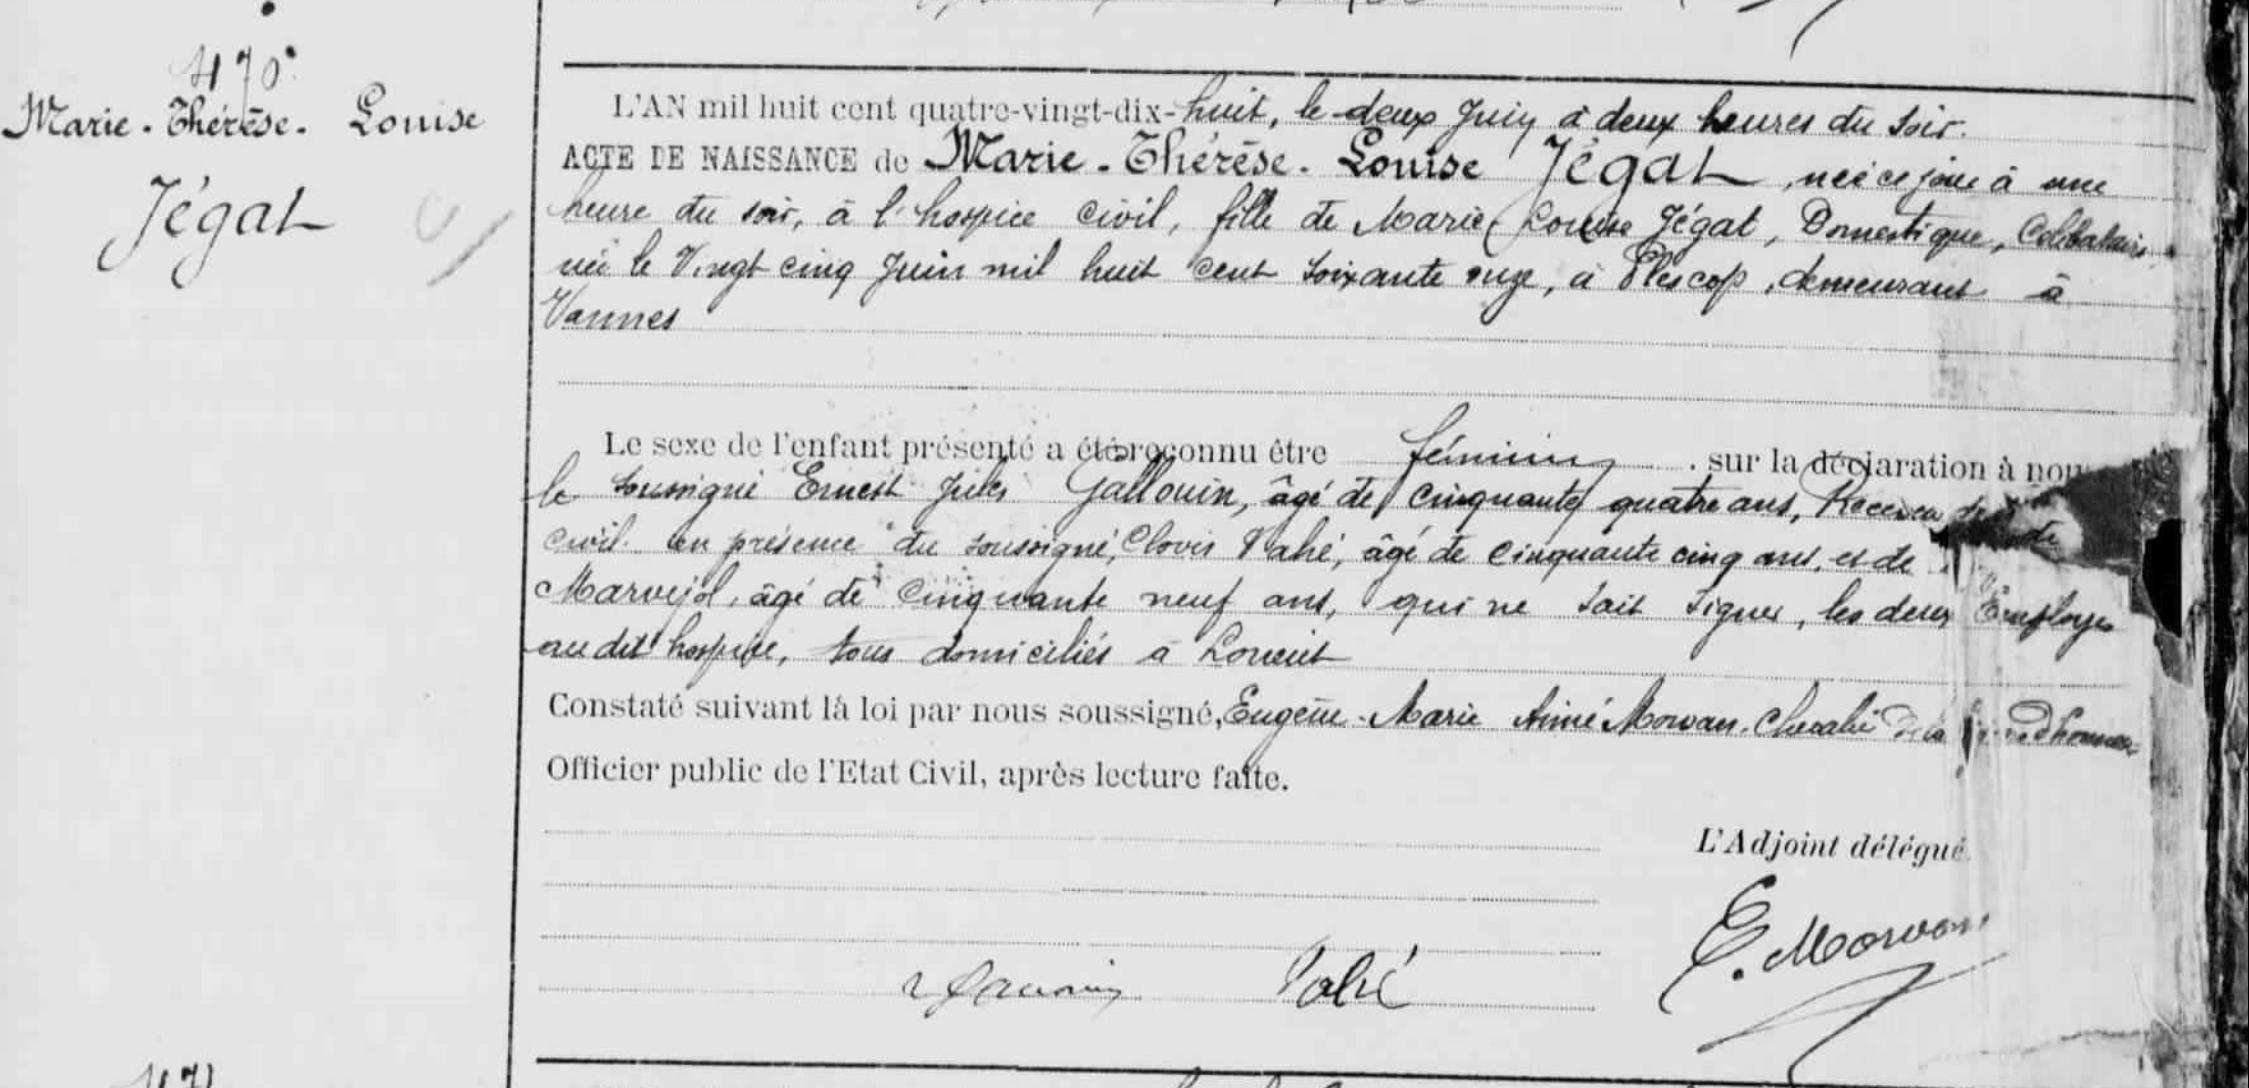 470
Marie-Thérèse-Louise
Jégat
L'AN mil huit cent quatre-vingt-dix-huit, le deux Juin à deux heures du soir.
ACTE DE NAISSANCE de Marie-Thérèse-Louise Jégat, née ce jour à une
heure du soir, à l'hospice civil, fille de Marie Louise Jégat, Domestique, Célibataire,
née le Vingt cinq Juin mil huit cent soixante onze, à Plescop, demeurant à
Vannes
Le sexe de l'enfant présenté a été reconnu être féminin sur la déclaration à nous
le soussigné Ernest Jules Gallouin, âgé de cinquante quatre ans, Receveur de
civil en présence du soussigné, Clovis Pahé, âgé de cinquante cinq ans, et de
Marvejol, âgé de cinquante neuf ans, qui ne sait signer, les deux Employés
audit hospice, tous domiciliés à Lorient
Constaté suivant la loi par nous soussigné, Eugène-Marie Aimé Morvan, Chevalier de la d'honneur
Officier public de l'Etat Civil, après lecture faite.
L'Adjoint délégué
Pahé
E. Morvan
471